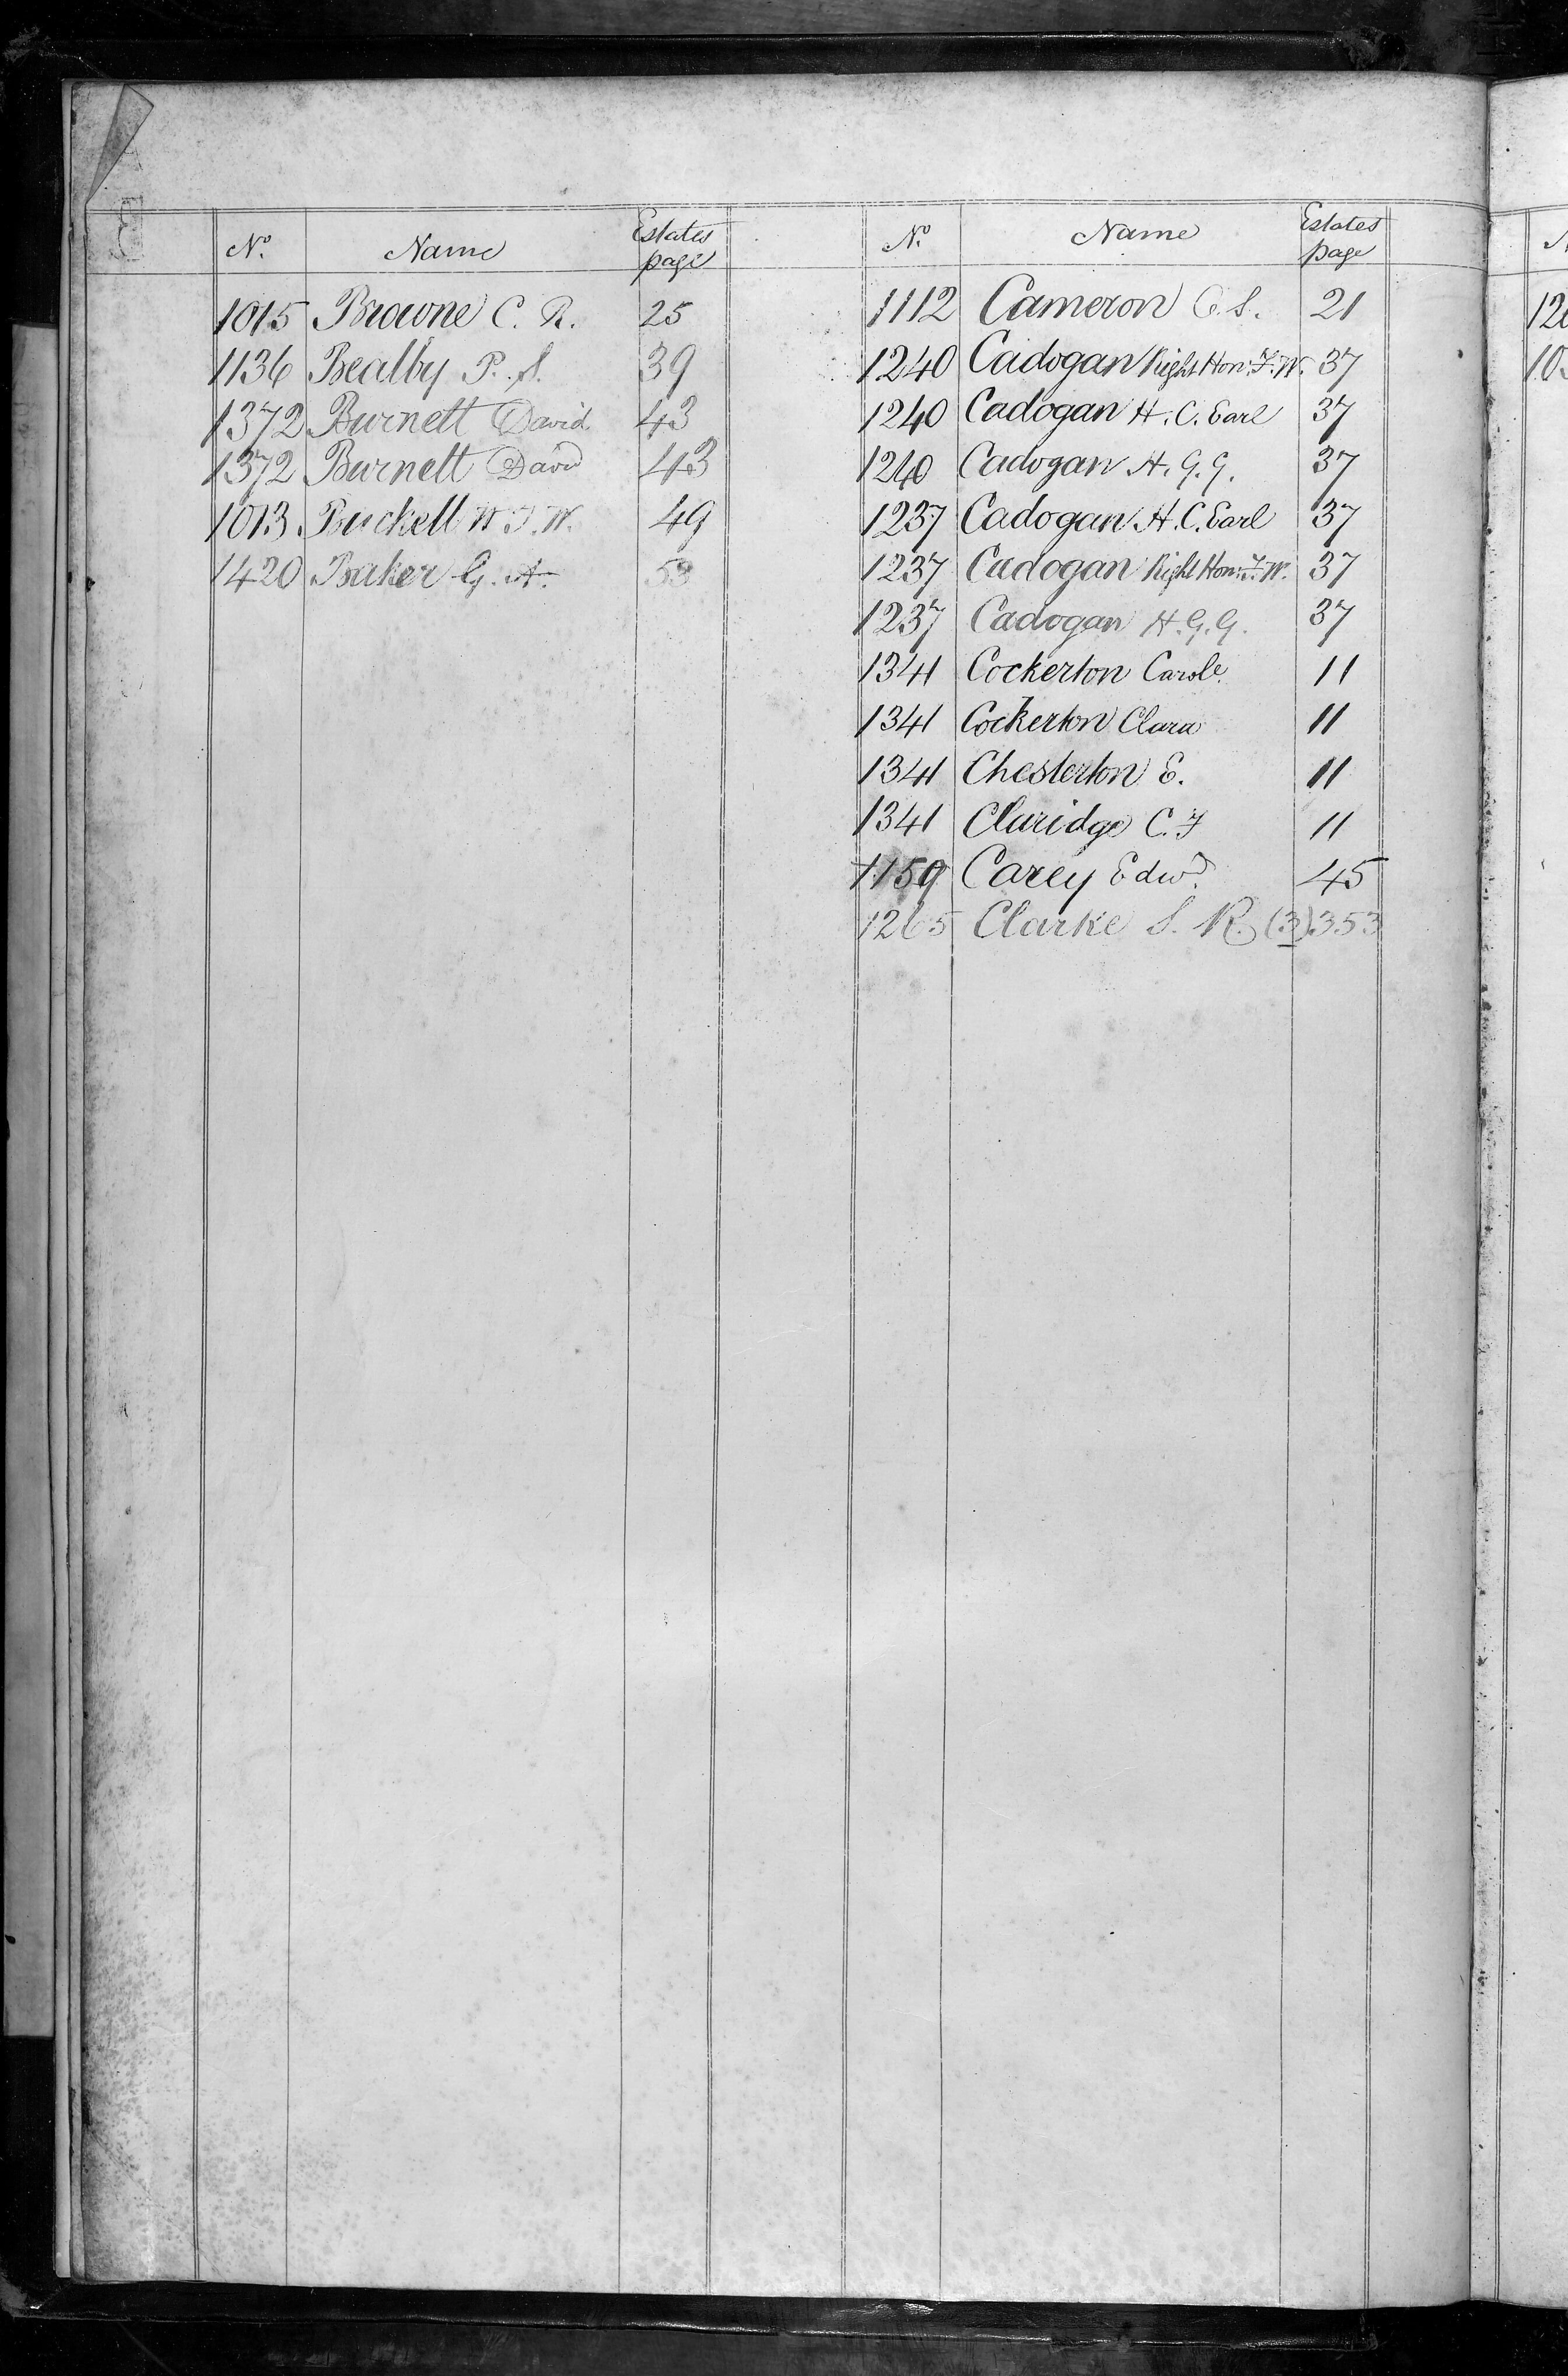 No. Name Estates page
1015 Browne C. R. 25
1136 Bealby P. S. 39
1372 Burnett David 43
1372 Burnett David 43
1013 Buckell W. F. W. 49
1420 Baker G. A. 53
No. Name Estates page
1112 Cameron C. S. 21
1240 Cadogan Right Hon. F. W. 37
1240 Cadogan H. C. Earl 37
1240 Cadogan H. G. G. 37
1237 Cadogan H. C. Earl 37
1237 Cadogan Right Hon. F. W. 37
1237 Cadogan H. G. G. 37
1341 Cockerton Carole 11
1341 Cockerton Clara 11
1341 Chesterton E. 11
1341 Claridge C. F 11
1159 Carey Edwd. 45
1265 Clarke S. R. (3) 353